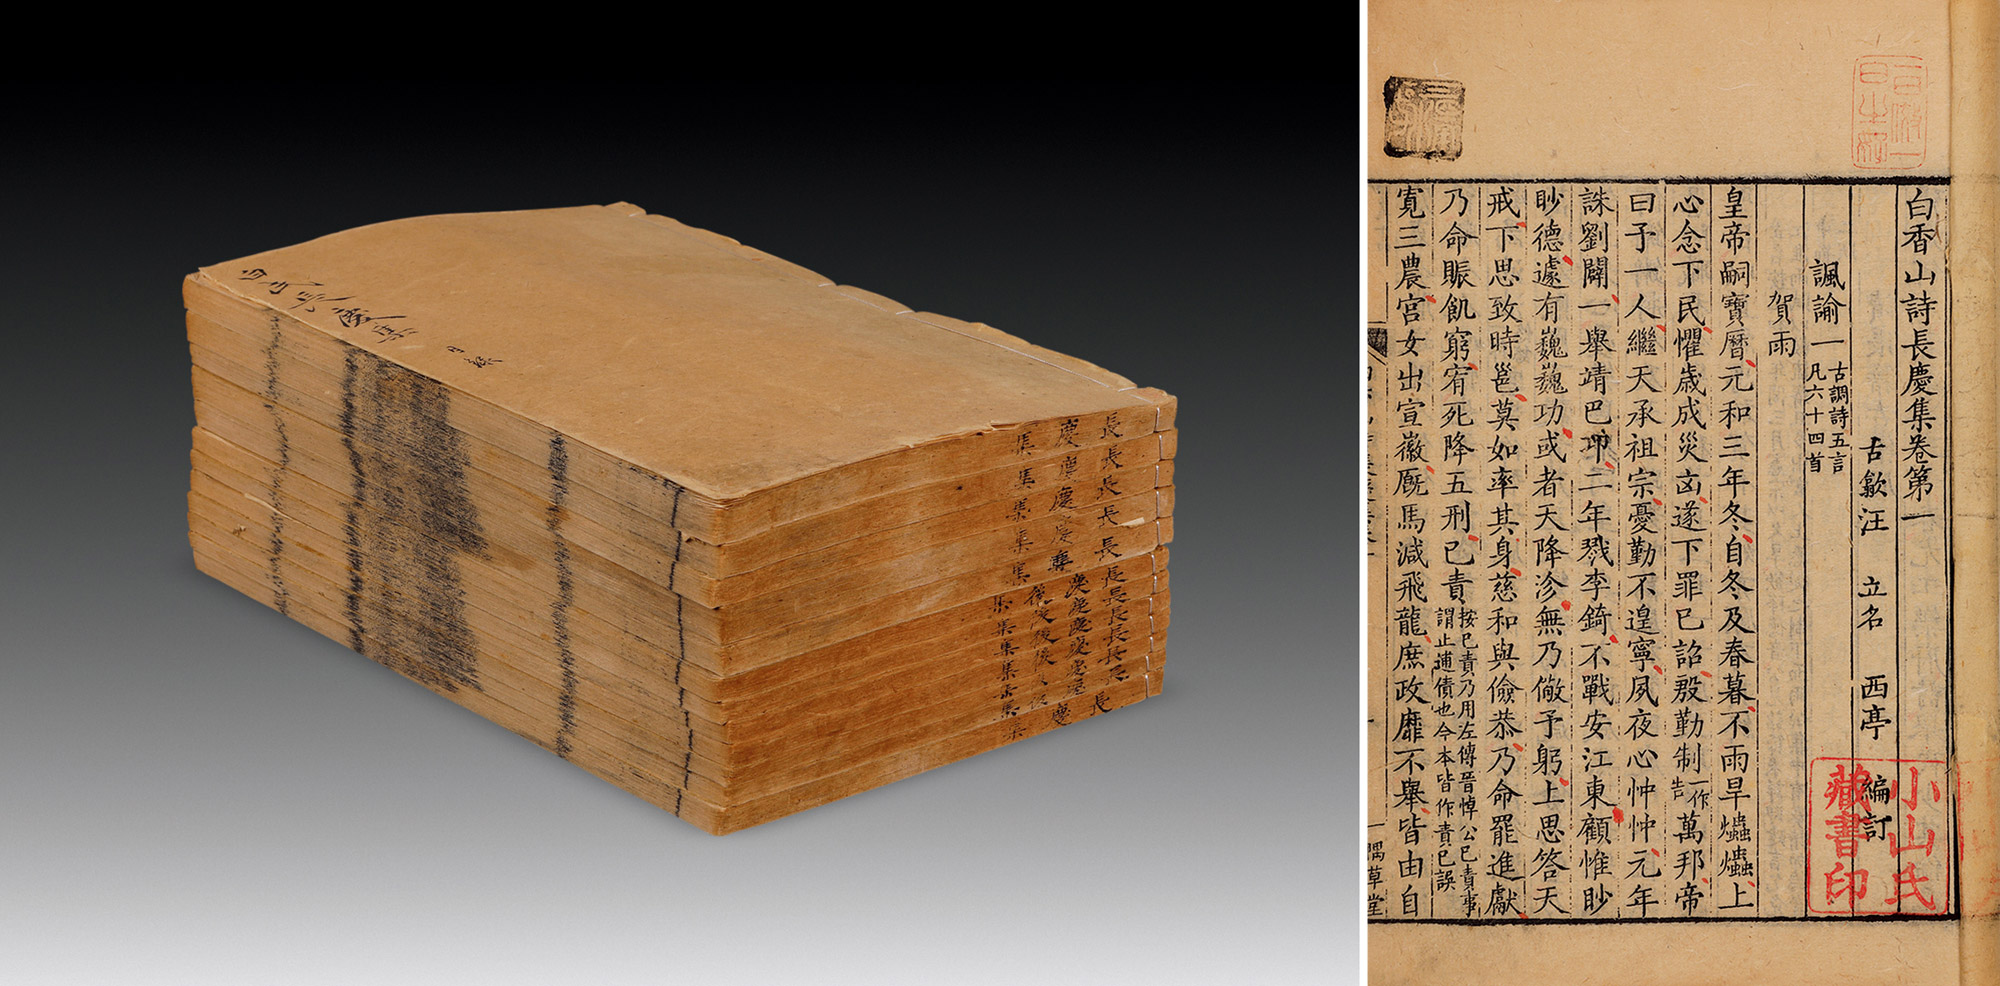 白香山詩長慶集卷第一
古歙汪 立名 西亭 編訂
諷諭一 古調詩五言
凡六十四首
賀雨
皇帝嗣寶曆元和三年冬自冬及春暮不雨旱爞爞上
心念下民懼歲成災凶遂下罪已詔殷勤制一作告萬邦帝
曰予一人繼天承祖宗憂勤不遑寧夙夜心忡忡元年
誅劉闢一舉靖巴卭二年戮李錡不戰安江東顧惟眇
眇德遽有巍巍功或者天降沴無乃儆予躬上思答天
戒下思致時邕莫如率其身慈和與儉恭乃命罷進獻
乃命賑飢窮宥死降五刑已責按已責乃用左傳晉悼公已責事
謂止逋債也今本皆作責已誤
寛三農宮女出宣徽厩馬減飛龍庶政靡不舉皆由自
一隅草堂
小山氏
藏書印
長慶集
長慶集
長慶集
長慶集
長慶集
長慶集
長慶後集
長慶後集
長慶後集
長慶後集